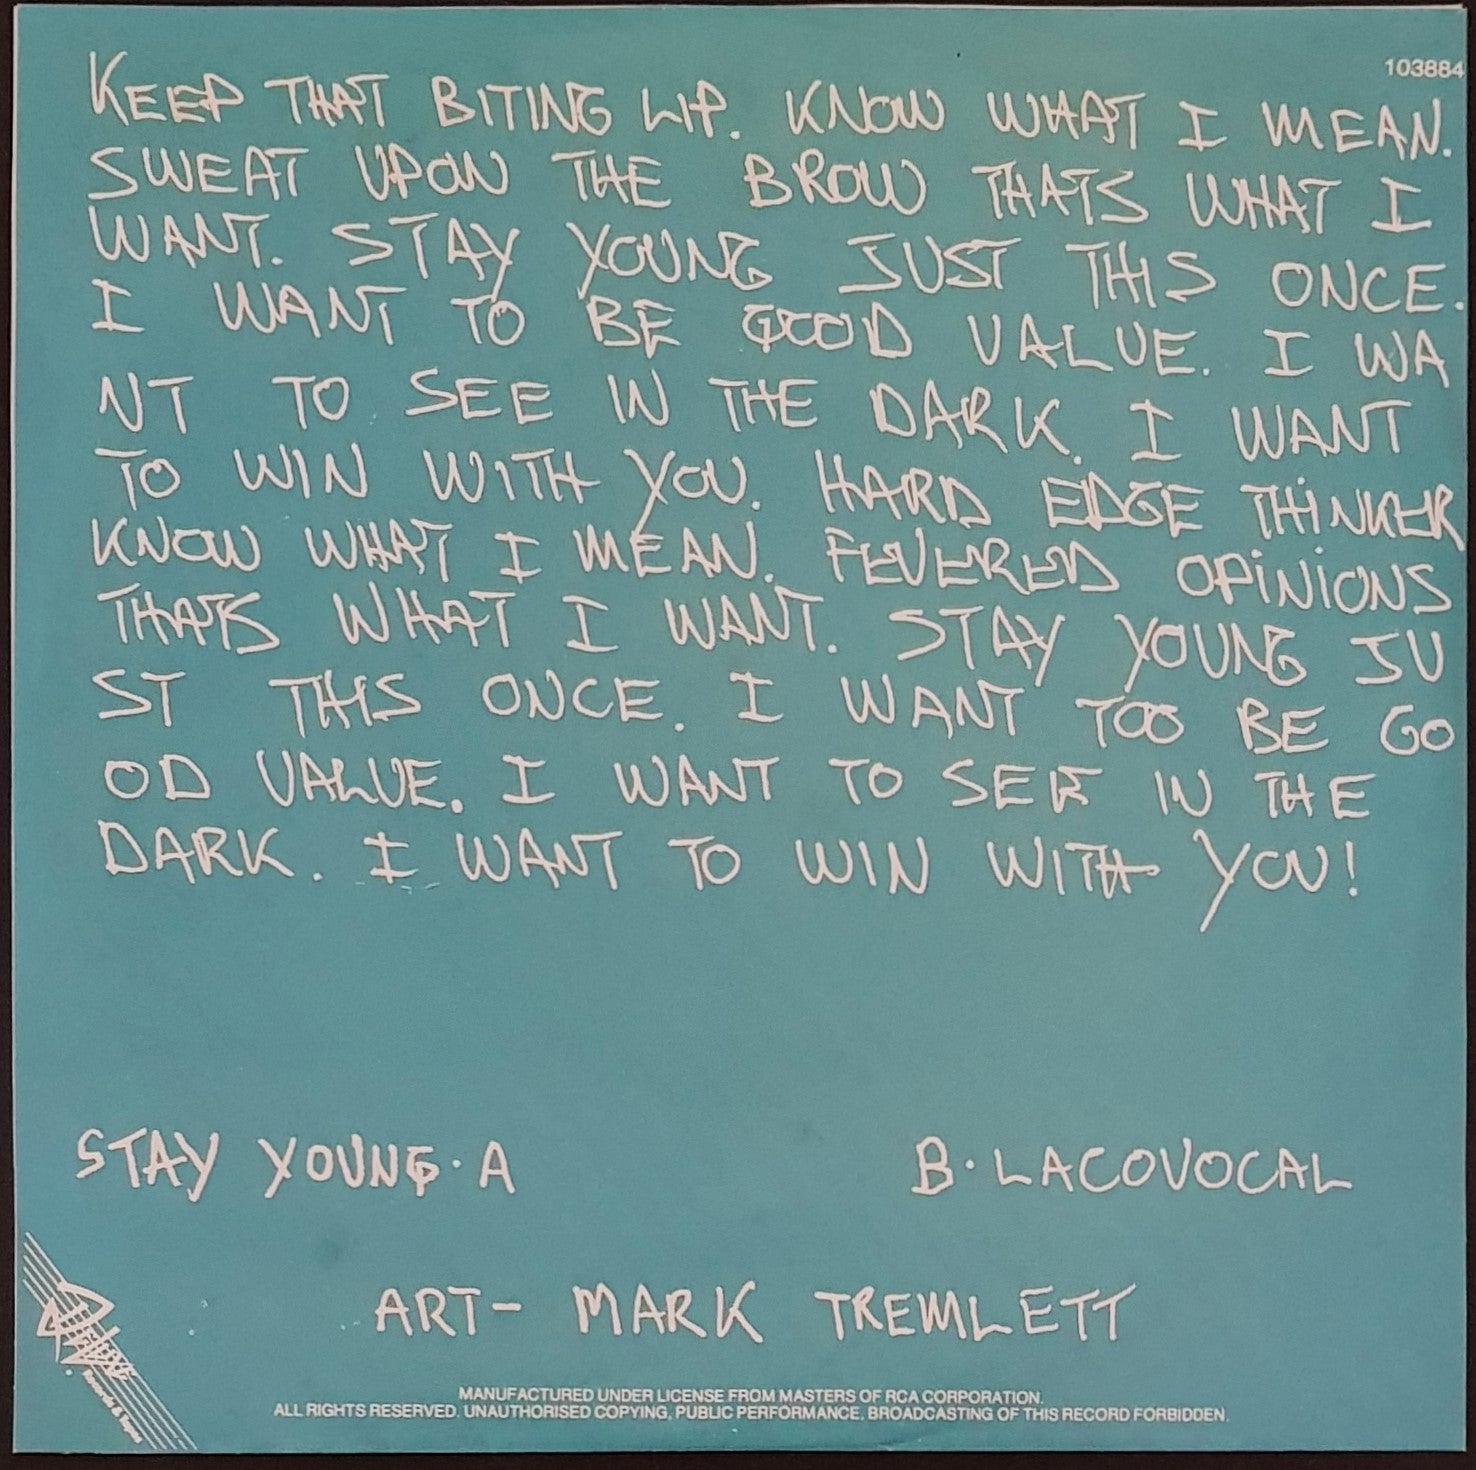 103884
KEEP THAT BITING LIP. KNOW WHAT I MEAN.
SWEAT UPON THE BROW THATS WHAT I
WANT. STAY YOUNG JUST THIS ONCE.
I WANT TO BE GOOD VALUE. I WA
NT TO SEE IN THE DARK. I WANT
TO WIN WITH YOU. HARD EDGE THINKER
KNOW WHAT I MEAN. FEVERED OPINIONS
THATS WHAT I WANT. STAY YOUNG JU
ST THIS ONCE. I WANT TOO BE GO
OD VALUE. I WANT TO SEE IN THE
DARK. I WANT TO WIN WITH YOU!
STAY YOUNG·A B·LACOVOCAL
ART- MARK TREMLETT
Deluxe
Records & Tapes
MANUFACTURED UNDER LICENSE FROM MASTERS OF RCA CORPORATION.
ALL RIGHTS RESERVED. UNAUTHORISED COPYING, PUBLIC PERFORMANCE, BROADCASTING OF THIS RECORD FORBIDDEN.